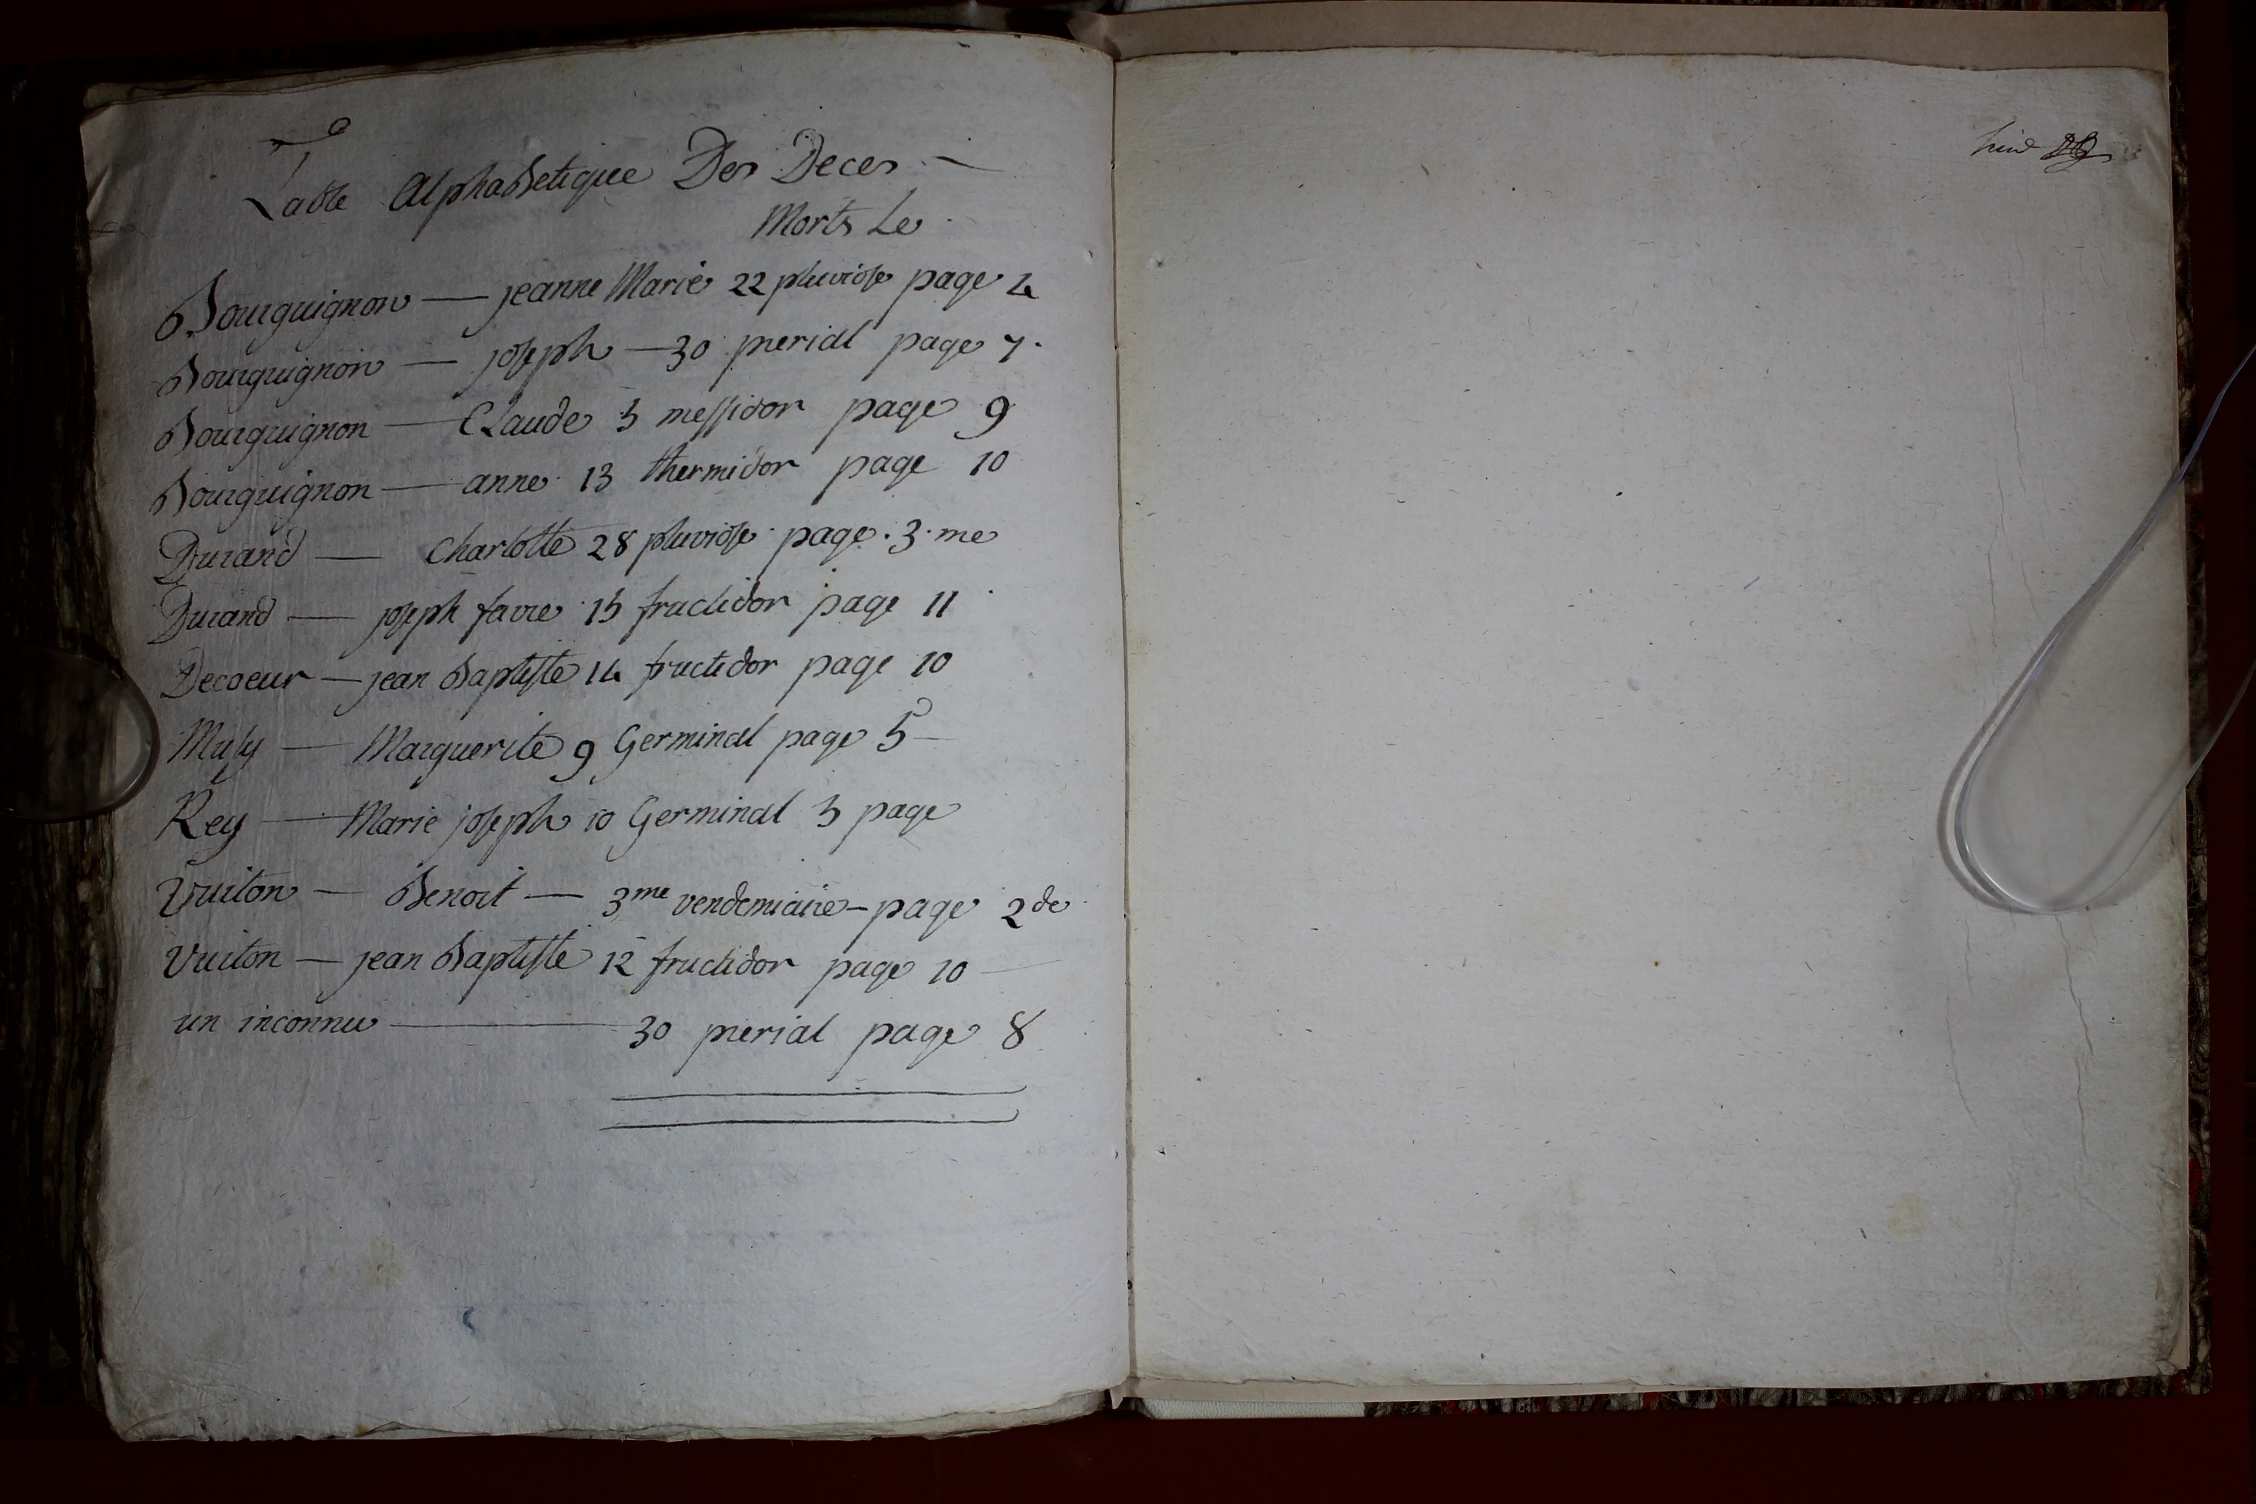 Table Alphabetique Des Deces
Morts Le
Bourguignon — jeanne Marie 22 pluviose page 4
Bourguignon — joseph — 30 prerial page 7.
Bourguignon — Claude 5 messidor page 9
Bourguignon — anne 13 thermidor page 10
Durand — Charlotte 28 pluviose page . 3 . me
Durand — joseph favre 15 fructidor page 11
Decoeur — jean Baptiste 14 fructidor page 10
Muly — Marguerite 9 Germinal page 5 —
Rey — Marie joseph 10 Germinal 5 page
Vuiton — Benoit — 3me vendemiaire — page 2de
Vuiton — jean Baptiste 12 fructidor page 10 —
un inconnu — 30 prerial page 8